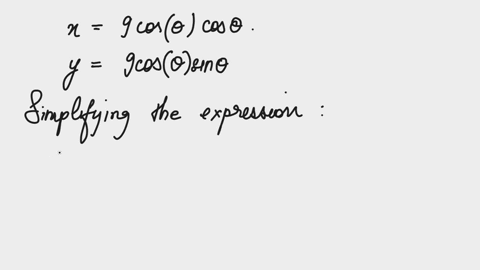 x = 9 cos(θ) cosθ.
y = 9cos(θ)sinθ
Simplifying the expression :